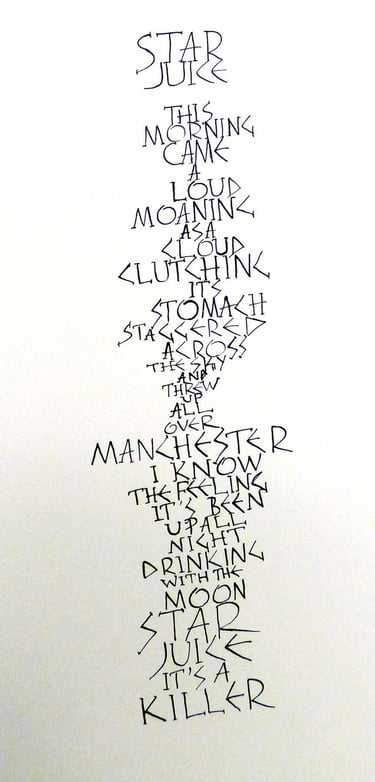 STAR
JUICE
THIS
MORNING
CAME
A
LOUD
MOANING
AS A
CLOUD
CLUTCHING
ITS
STOMACH
STAGGERED
ACROSS
THE SKY
AND
THREW
UP
ALL
OVER
MANCHESTER
I KNOW
THE FEELING
IT'S BEEN
UP ALL
NIGHT
DRINKING
WITH THE
MOON
STAR
JUICE
IT'S A
KILLER